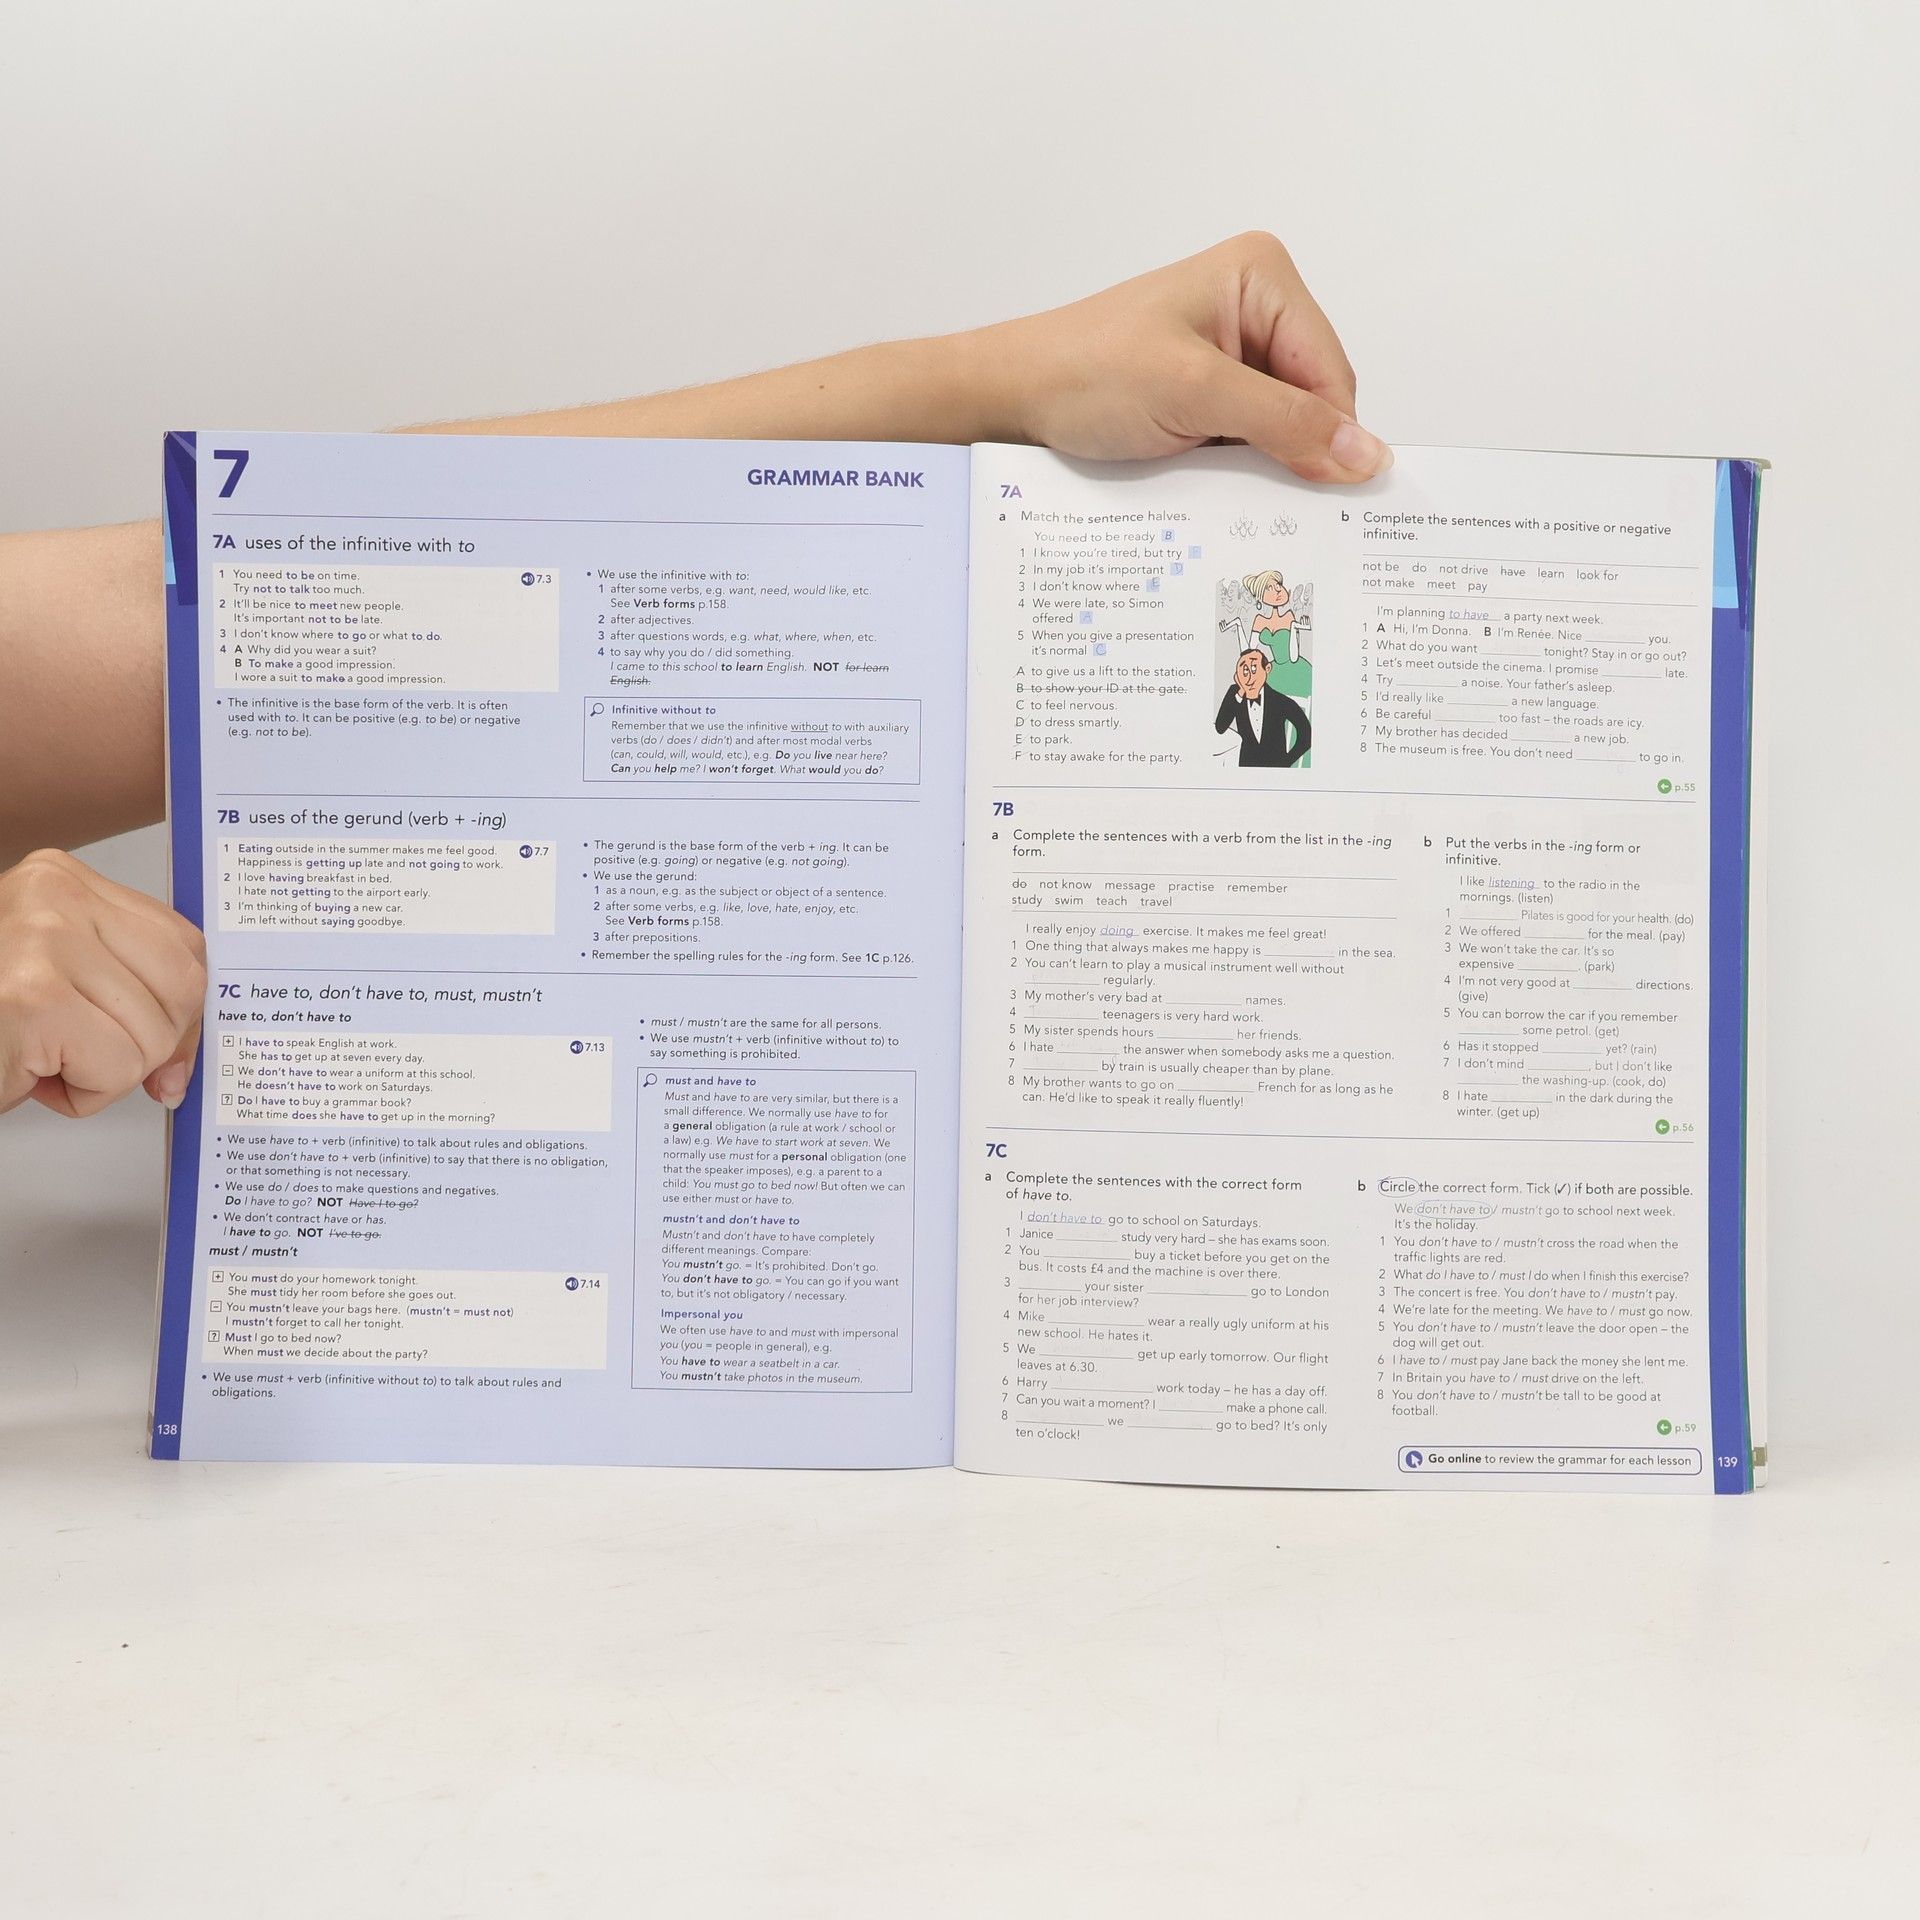 7
GRAMMAR BANK
7A uses of the infinitive with to
1 You need to be on time.
Try not to talk too much.
2 It'll be nice to meet new people.
It's important not to be late.
3 I don't know where to go or what to do.
4 A Why did you wear a suit?
B To make a good impression.
I wore a suit to make a good impression.
7.3
• The infinitive is the base form of the verb. It is often
used with to. It can be positive (e.g. to be) or negative
(e.g. not to be).
• We use the infinitive with to:
1 after some verbs, e.g. want, need, would like, etc.
See Verb forms p.158.
2 after adjectives.
3 after questions words, e.g. what, where, when, etc.
4 to say why you do / did something.
I came to this school to learn English. NOT for learn
English.
Infinitive without to
Remember that we use the infinitive without to with auxiliary
verbs (do / does / didn't) and after most modal verbs
(can, could, will, would, etc.), e.g. Do you live near here?
Can you help me? I won't forget. What would you do?
7B uses of the gerund (verb + -ing)
1 Eating outside in the summer makes me feel good.
Happiness is getting up late and not going to work.
2 I love having breakfast in bed.
I hate not getting to the airport early.
3 I'm thinking of buying a new car.
Jim left without saying goodbye.
7.7
• The gerund is the base form of the verb + ing. It can be
positive (e.g. going) or negative (e.g. not going).
• We use the gerund:
1 as a noun, e.g. as the subject or object of a sentence.
2 after some verbs, e.g. like, love, hate, enjoy, etc.
See Verb forms p.158.
3 after prepositions.
• Remember the spelling rules for the -ing form. See 1C p.126.
7C have to, don't have to, must, mustn't
have to, don't have to
+ I have to speak English at work.
She has to get up at seven every day.
– We don't have to wear a uniform at this school.
He doesn't have to work on Saturdays.
? Do I have to buy a grammar book?
What time does she have to get up in the morning?
7.13
• We use have to + verb (infinitive) to talk about rules and obligations.
• We use don't have to + verb (infinitive) to say that there is no obligation,
or that something is not necessary.
• We use do / does to make questions and negatives.
Do I have to go? NOT Have I to go?
• We don't contract have or has.
I have to go. NOT I've to go.
must / mustn't
+ You must do your homework tonight.
She must tidy her room before she goes out.
– You mustn't leave your bags here. (mustn't = must not)
I mustn't forget to call her tonight.
? Must I go to bed now?
When must we decide about the party?
7.14
• We use must + verb (infinitive without to) to talk about rules and
obligations.
• must / mustn't are the same for all persons.
• We use mustn't + verb (infinitive without to) to
say something is prohibited.
must and have to
Must and have to are very similar, but there is a
small difference. We normally use have to for
a general obligation (a rule at work / school or
a law) e.g. We have to start work at seven. We
normally use must for a personal obligation (one
that the speaker imposes), e.g. a parent to a
child: You must go to bed now! But often we can
use either must or have to.
mustn't and don't have to
Mustn't and don't have to have completely
different meanings. Compare:
You mustn't go. = It's prohibited. Don't go.
You don't have to go. = You can go if you want
to, but it's not obligatory / necessary.
Impersonal you
We often use have to and must with impersonal
you (you = people in general), e.g.
You have to wear a seatbelt in a car.
You mustn't take photos in the museum.
138
7A
a Match the sentence halves.
You need to be ready B
1 I know you're tired, but try F
2 In my job it's important D
3 I don't know where E
4 We were late, so Simon
offered A
5 When you give a presentation
it's normal C
A to give us a lift to the station.
B to show your ID at the gate.
C to feel nervous.
D to dress smartly.
E to park.
F to stay awake for the party.
b Complete the sentences with a positive or negative
infinitive.
not be do not drive have learn look for
not make meet pay
I'm planning to have a party next week.
1 A Hi, I'm Donna. B I'm Renée. Nice ________ you.
2 What do you want ________ tonight? Stay in or go out?
3 Let's meet outside the cinema. I promise ________ late.
4 Try ________ a noise. Your father's asleep.
5 I'd really like ________ a new language.
6 Be careful ________ too fast – the roads are icy.
7 My brother has decided ________ a new job.
8 The museum is free. You don't need ________ to go in.
p.55
7B
a Complete the sentences with a verb from the list in the -ing
form.
do not know message practise remember
study swim teach travel
I really enjoy doing exercise. It makes me feel great!
1 One thing that always makes me happy is ________ in the sea.
2 You can't learn to play a musical instrument well without
________ regularly.
3 My mother's very bad at ________ names.
4 ________ teenagers is very hard work.
5 My sister spends hours ________ her friends.
6 I hate ________ the answer when somebody asks me a question.
7 ________ by train is usually cheaper than by plane.
8 My brother wants to go on ________ French for as long as he
can. He'd like to speak it really fluently!
b Put the verbs in the -ing form or
infinitive.
I like listening to the radio in the
mornings. (listen)
1 ________ Pilates is good for your health. (do)
2 We offered ________ for the meal. (pay)
3 We won't take the car. It's so
expensive ________. (park)
4 I'm not very good at ________ directions.
(give)
5 You can borrow the car if you remember
________ some petrol. (get)
6 Has it stopped ________ yet? (rain)
7 I don't mind ________, but I don't like
________ the washing-up. (cook, do)
8 I hate ________ in the dark during the
winter. (get up)
p.56
7C
a Complete the sentences with the correct form
of have to.
I don't have to go to school on Saturdays.
1 Janice ________ study very hard – she has exams soon.
2 You ________ buy a ticket before you get on the
bus. It costs £4 and the machine is over there.
3 ________ your sister ________ go to London
for her job interview?
4 Mike ________ wear a really ugly uniform at his
new school. He hates it.
5 We ________ get up early tomorrow. Our flight
leaves at 6.30.
6 Harry ________ work today – he has a day off.
7 Can you wait a moment? I ________ make a phone call.
8 ________ we ________ go to bed? It's only
ten o'clock!
b Circle the correct form. Tick (✓) if both are possible.
We don't have to / mustn't go to school next week.
It's the holiday.
1 You don't have to / mustn't cross the road when the
traffic lights are red.
2 What do I have to / must I do when I finish this exercise?
3 The concert is free. You don't have to / mustn't pay.
4 We're late for the meeting. We have to / must go now.
5 You don't have to / mustn't leave the door open – the
dog will get out.
6 I have to / must pay Jane back the money she lent me.
7 In Britain you have to / must drive on the left.
8 You don't have to / mustn't be tall to be good at
football.
p.59
Go online to review the grammar for each lesson
139